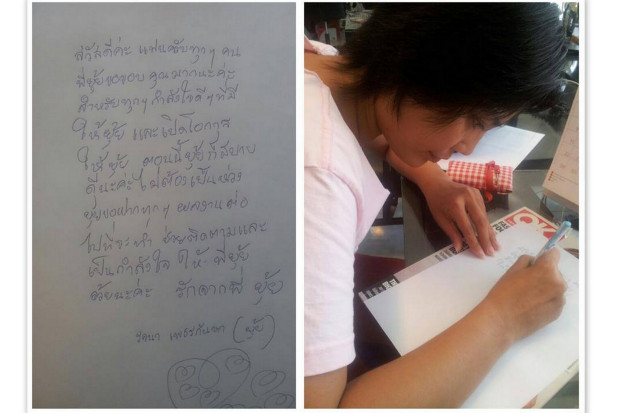 สวัสดีค่ะ แฟนคลับทุกๆ คน
พี่ยุ้ยขอขอบคุณมากนะค่ะ
สำหรับทุกๆ กำลังใจดีๆที่มี
ให้ยุ้ย และเปิดโอกาส
ให้ยุ้ย ตอนนี้ยุ้ยก็สบาย
ดีนะค่ะ ไม่ต้องเป็นห่วง
ยุ้ยขอฝากทุกๆ ผลงานต่อ
ไปที่จะทำ ช่วยติดตามและ
เป็นกำลังใจ ให้ พี่ยุ้ย
ด้วยนะค่ะ รักจากพี่ ยุ้ย
(ยุ้ย)